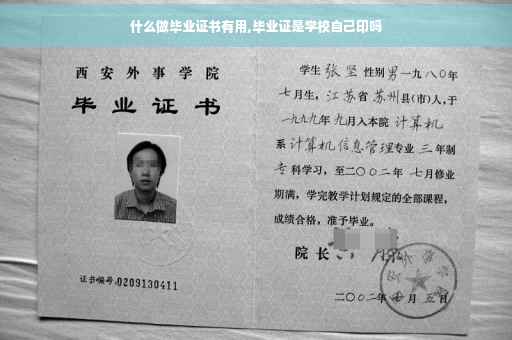 什么做毕业证书有用,毕业证是学校自己印吗
西安外事学院
毕业证书
证书编号:0209130411
学生 张坚 性别 男 一九八〇年
七月生, 江苏省 苏州县(市)人,于
一九九九年 九月入本院 计算机
系 计算机信息管理 专业 三 年制
专科学习, 至二〇〇二年 七月修业
期满, 学完教学计划规定的全部课程,
成绩合格, 准予毕业。
院长
二〇〇二年 月 五日